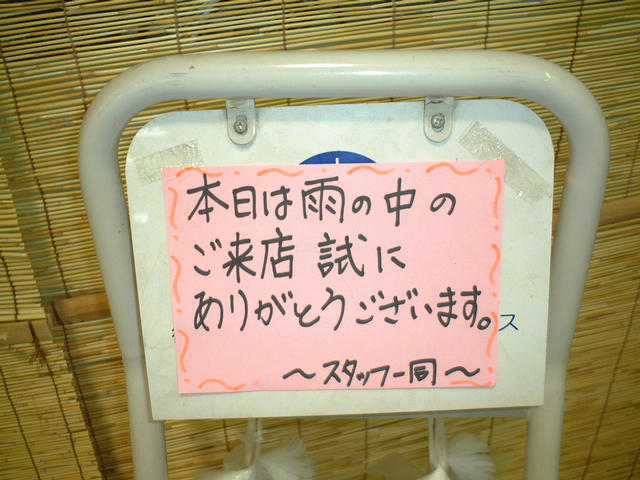 本日は雨の中の
ご来店 試に
ありがとうございます。
～スタッフ一同～
ス